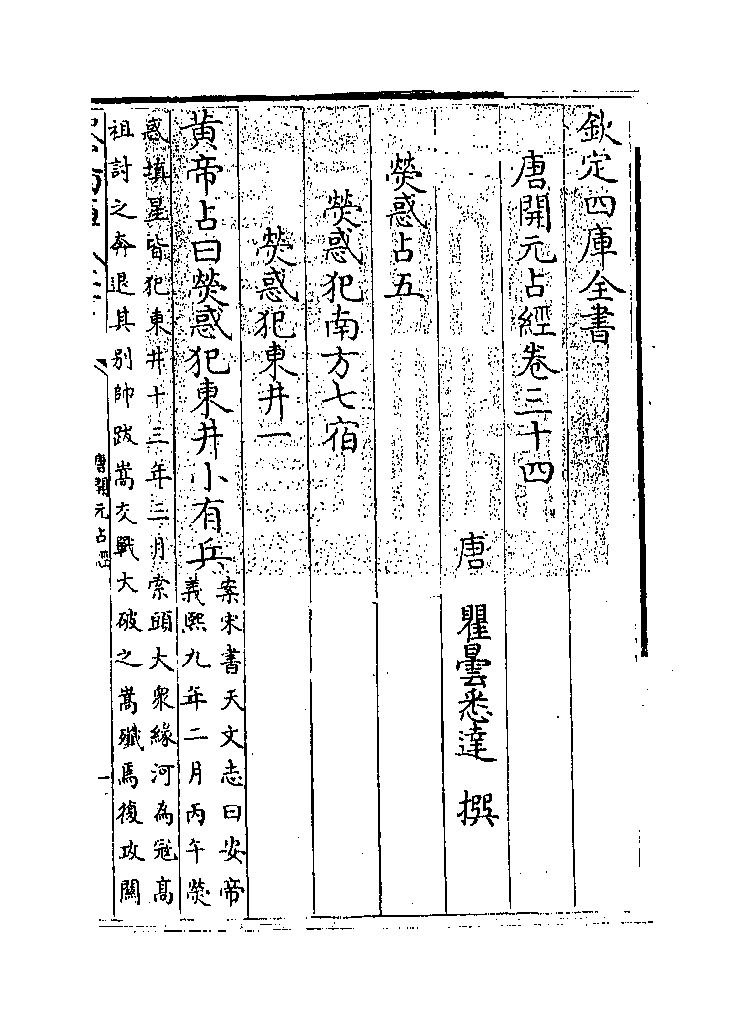 欽定四庫全書
唐開元占經卷三十四
唐 瞿曇悉達 撰
熒惑占五
熒惑犯南方七宿
熒惑犯東井一
黄帝占曰熒惑犯東井小有兵
案宋書天文志曰安帝
義熙九年二月丙午熒
惑填星皆犯東井十三年三月索頭大衆緣河為冦高
祖討之奔退其别帥跋嵩交戰大破之嵩殲焉復攻關
唐開元占經
一